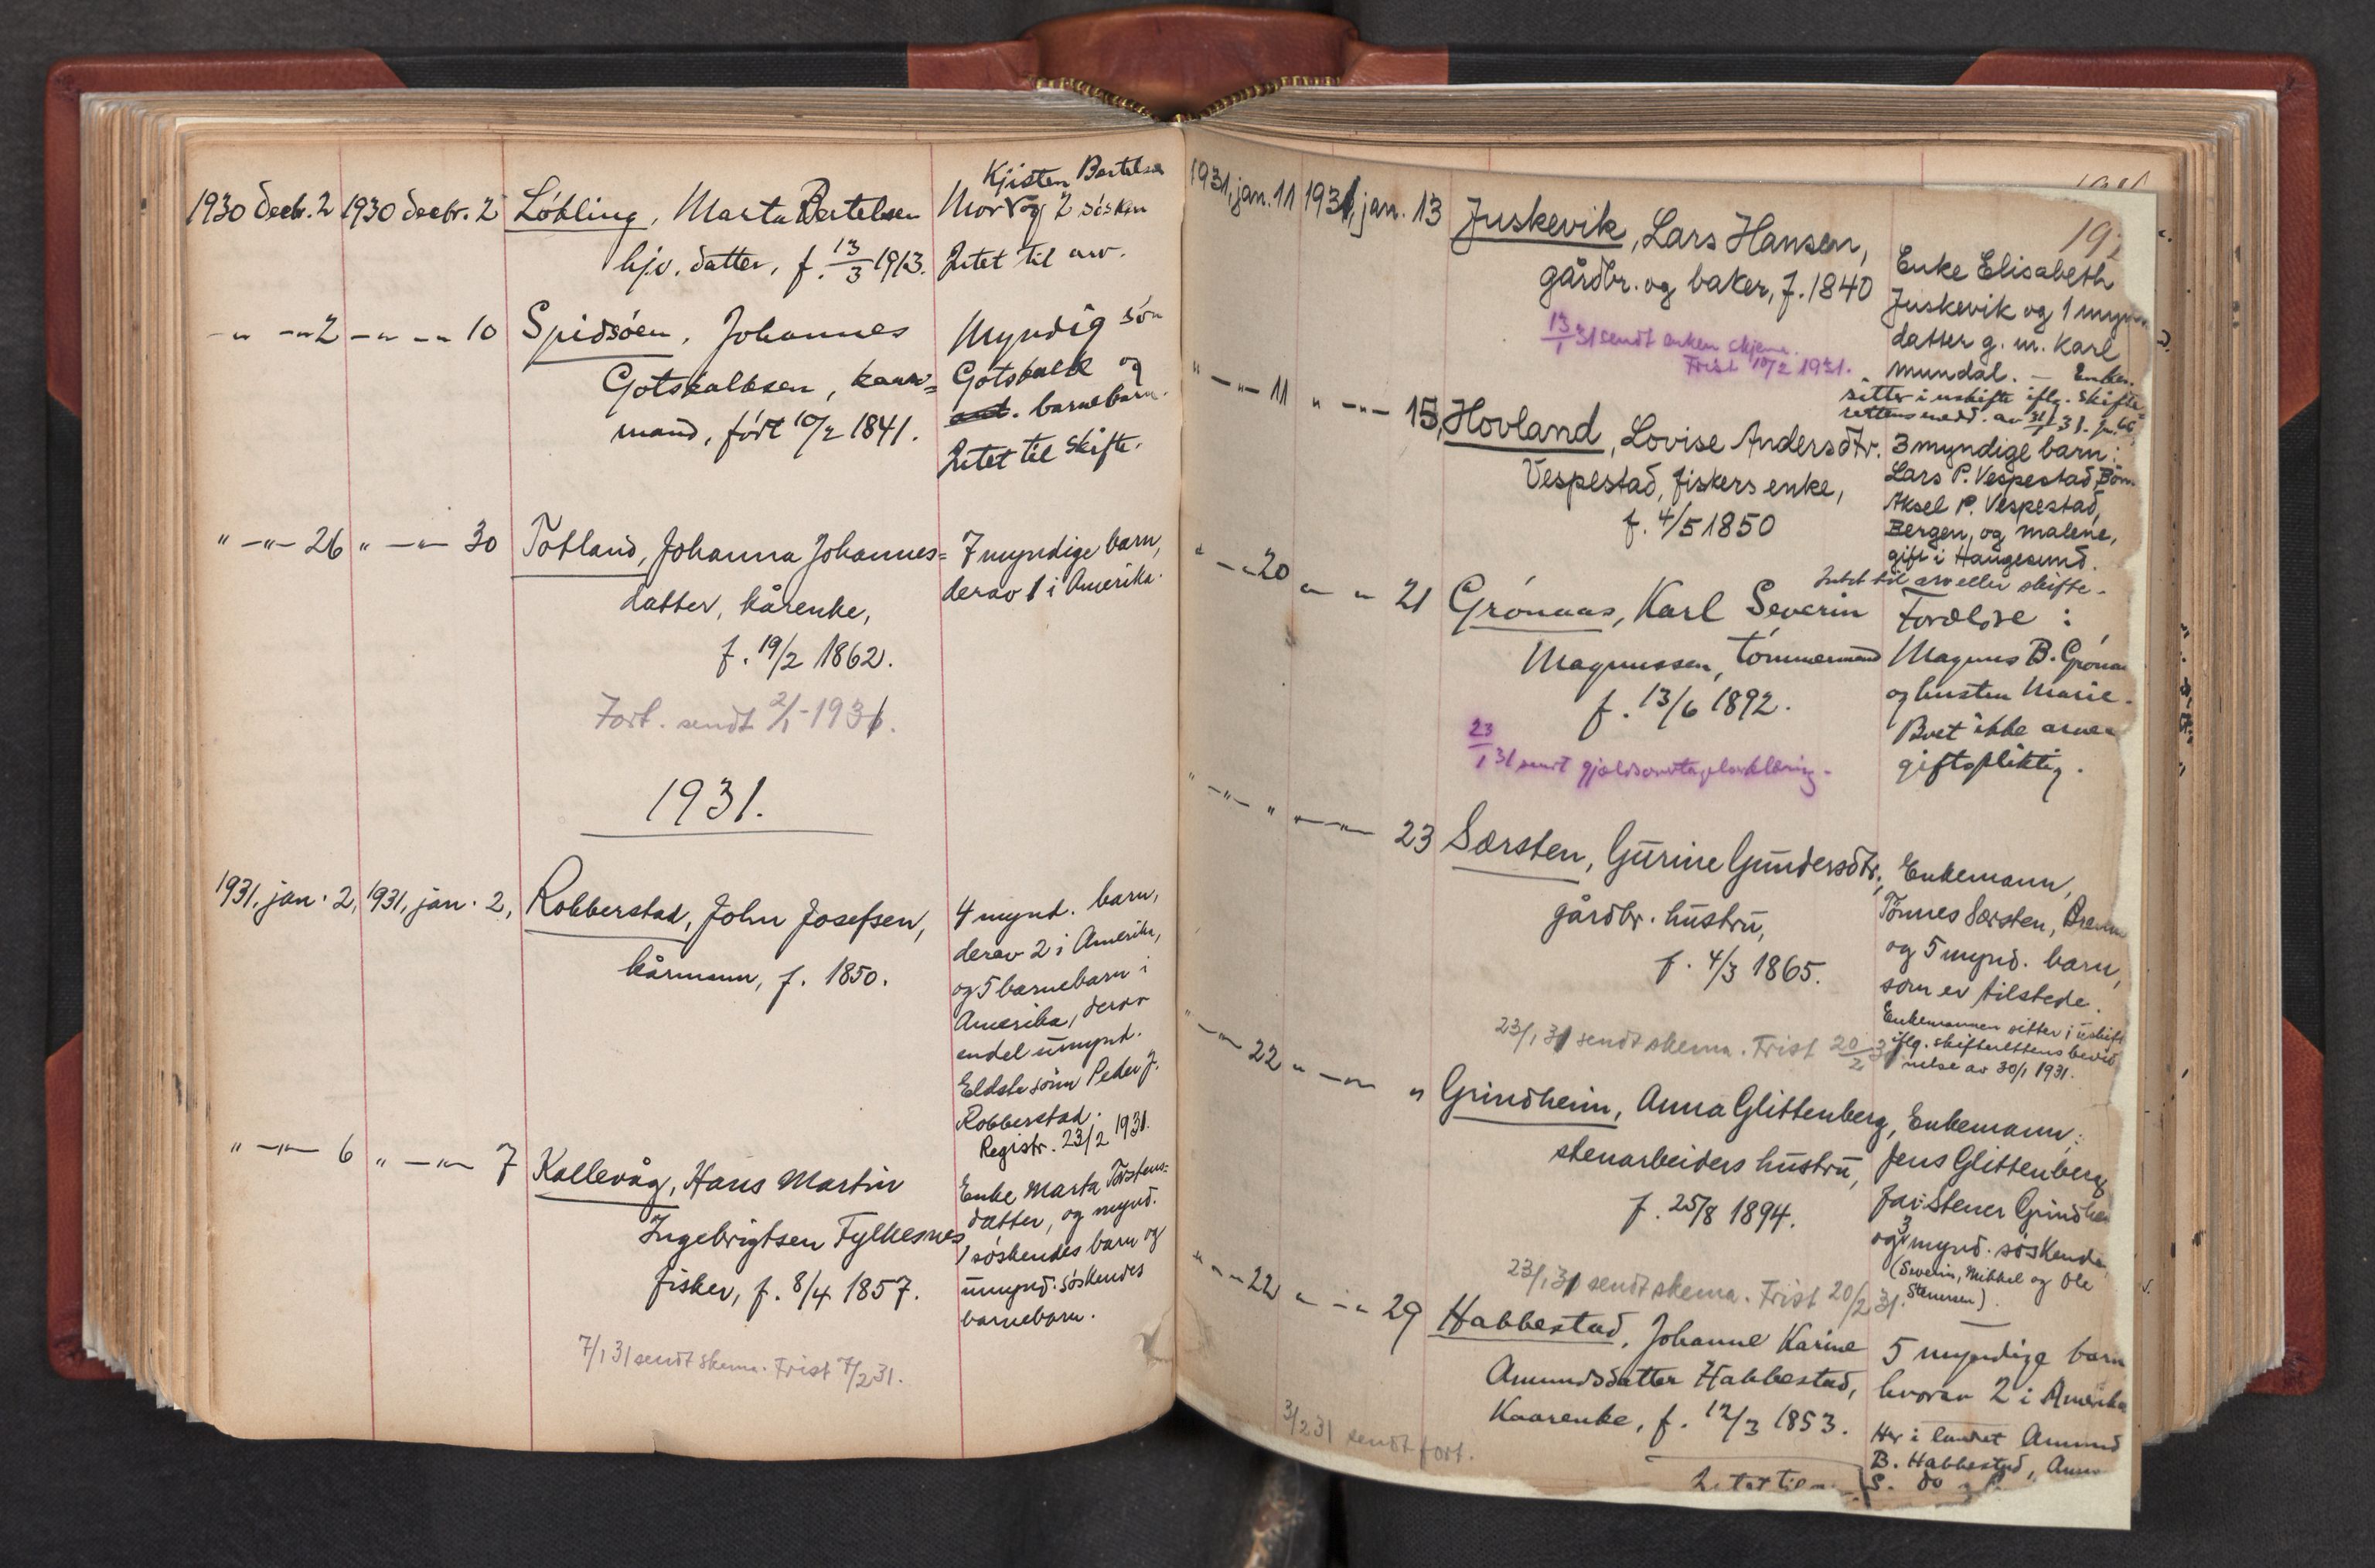 1930 decbr. 2 1930 decbr. 2 Løkling, Marta Bertelsen
hjv. datter, f. 13/3 1913.
Kjisten Bertelsen
Mor og 2 søsken
Intet til arv.
" -"- 2 -"- -"- 10 Spidsøen, Johannes
Gotskalksen, kaar=
mand, født 10/2 1841.
Myndig søn
Gotskalk og
barnebarn.
Intet til skifte.
" -"- 26 " -"- 30 Totland, Johanna Johannes=
datter, kårenke,
f. 19/2 1862.
Fort. sendt 2/1-1931.
7 myndige barn,
derav 1 i Amerika.
1931.
1931, jan. 2, 1931, jan. 2, Robberstad, John Josefsen,
kårmann, f. 1850.
4 mynd. barn,
derav 2 i Amerika,
og 5 barnebarn i
Amerika, derav
endel umynd.
Eldste sønn Peder J.
Robberstad.
Registr. 23/2 1931.
" -"- 6 " -"- 7 Kallevåg, Hans Martin
Ingebrigtsen Fylkesnes
fisker, f. 8/4 1857.
7/1 31 sendt skema. Frist 7/2 31.
Enke Marta Torstens=
datter, og mynd.
søskendes barn og
umynd. søskendes
barnebarn.
1931, jan. 11 1931, jan. 13 Juskevik, Lars Hansen,
gårdbr. og baker, f. 1840
13/1 31 sendt enken skjema.
Frist 10/2 1931.
Enke Elisabeth
Juskevik og 1
datter g. m. Karl
Mundal. – Enken
sitter i uskifte iflg. skifte=
rettens medd. av 31/1 31.
" -"- 11 " -"- 15, Hovland, Lovise Andersdtr.
Vespestad, fiskers enke,
f. 4/5 1850
3 myndige barn:
Lars P. Vespestad,
Aksel P. Vespestad,
Bergen, og Malene,
gift i Haugesund.
Intet til arv eller skifte.
" -"- 20 " " 21 Grønaas, Karl Severin
Magnussen, tømmermand
f. 13/6 1892.
23/1 31 sendt
Forældre:
Magnus B.
og hustru Marie.
Boet ikke
giftspliktig.
" -"- " -"- 23 Særsten, Gurine Gundersdtr.,
gårdbr. hustru,
f. 4/3 1865.
23/1 31 sendt skema. Frist 20/2 31.
Enkemann,
Tønnes Særsten,
og 5 mynd. barn,
som er tilstede.
Enkemannen sitter i uskift
iflg. skifterettens bevid
nelse av 30/1 1931.
" -"- 22 " -"- " Grindheim, Anna Glittenberg,
stenarbeiders hustru,
f. 25/8 1894.
23/1 31 sendt skema. Frist 20/2 31.
Enkemann:
Jens Glittenberg
far: Stener
og 3 mynd. søskende
(Severin, Mikkel og Ole
Stenersen).
" -"- 22 " -"- 29 Habbestad, Johanne Karine
Amundsdatter Habbestad,
Kaarenke, f. 12/3 1853.
3/2 31 sendt fort.
5 myndige barn
hvorav 2 i Amerika
Her i landet Amund
B. Habbestad,
S. do
Intet til